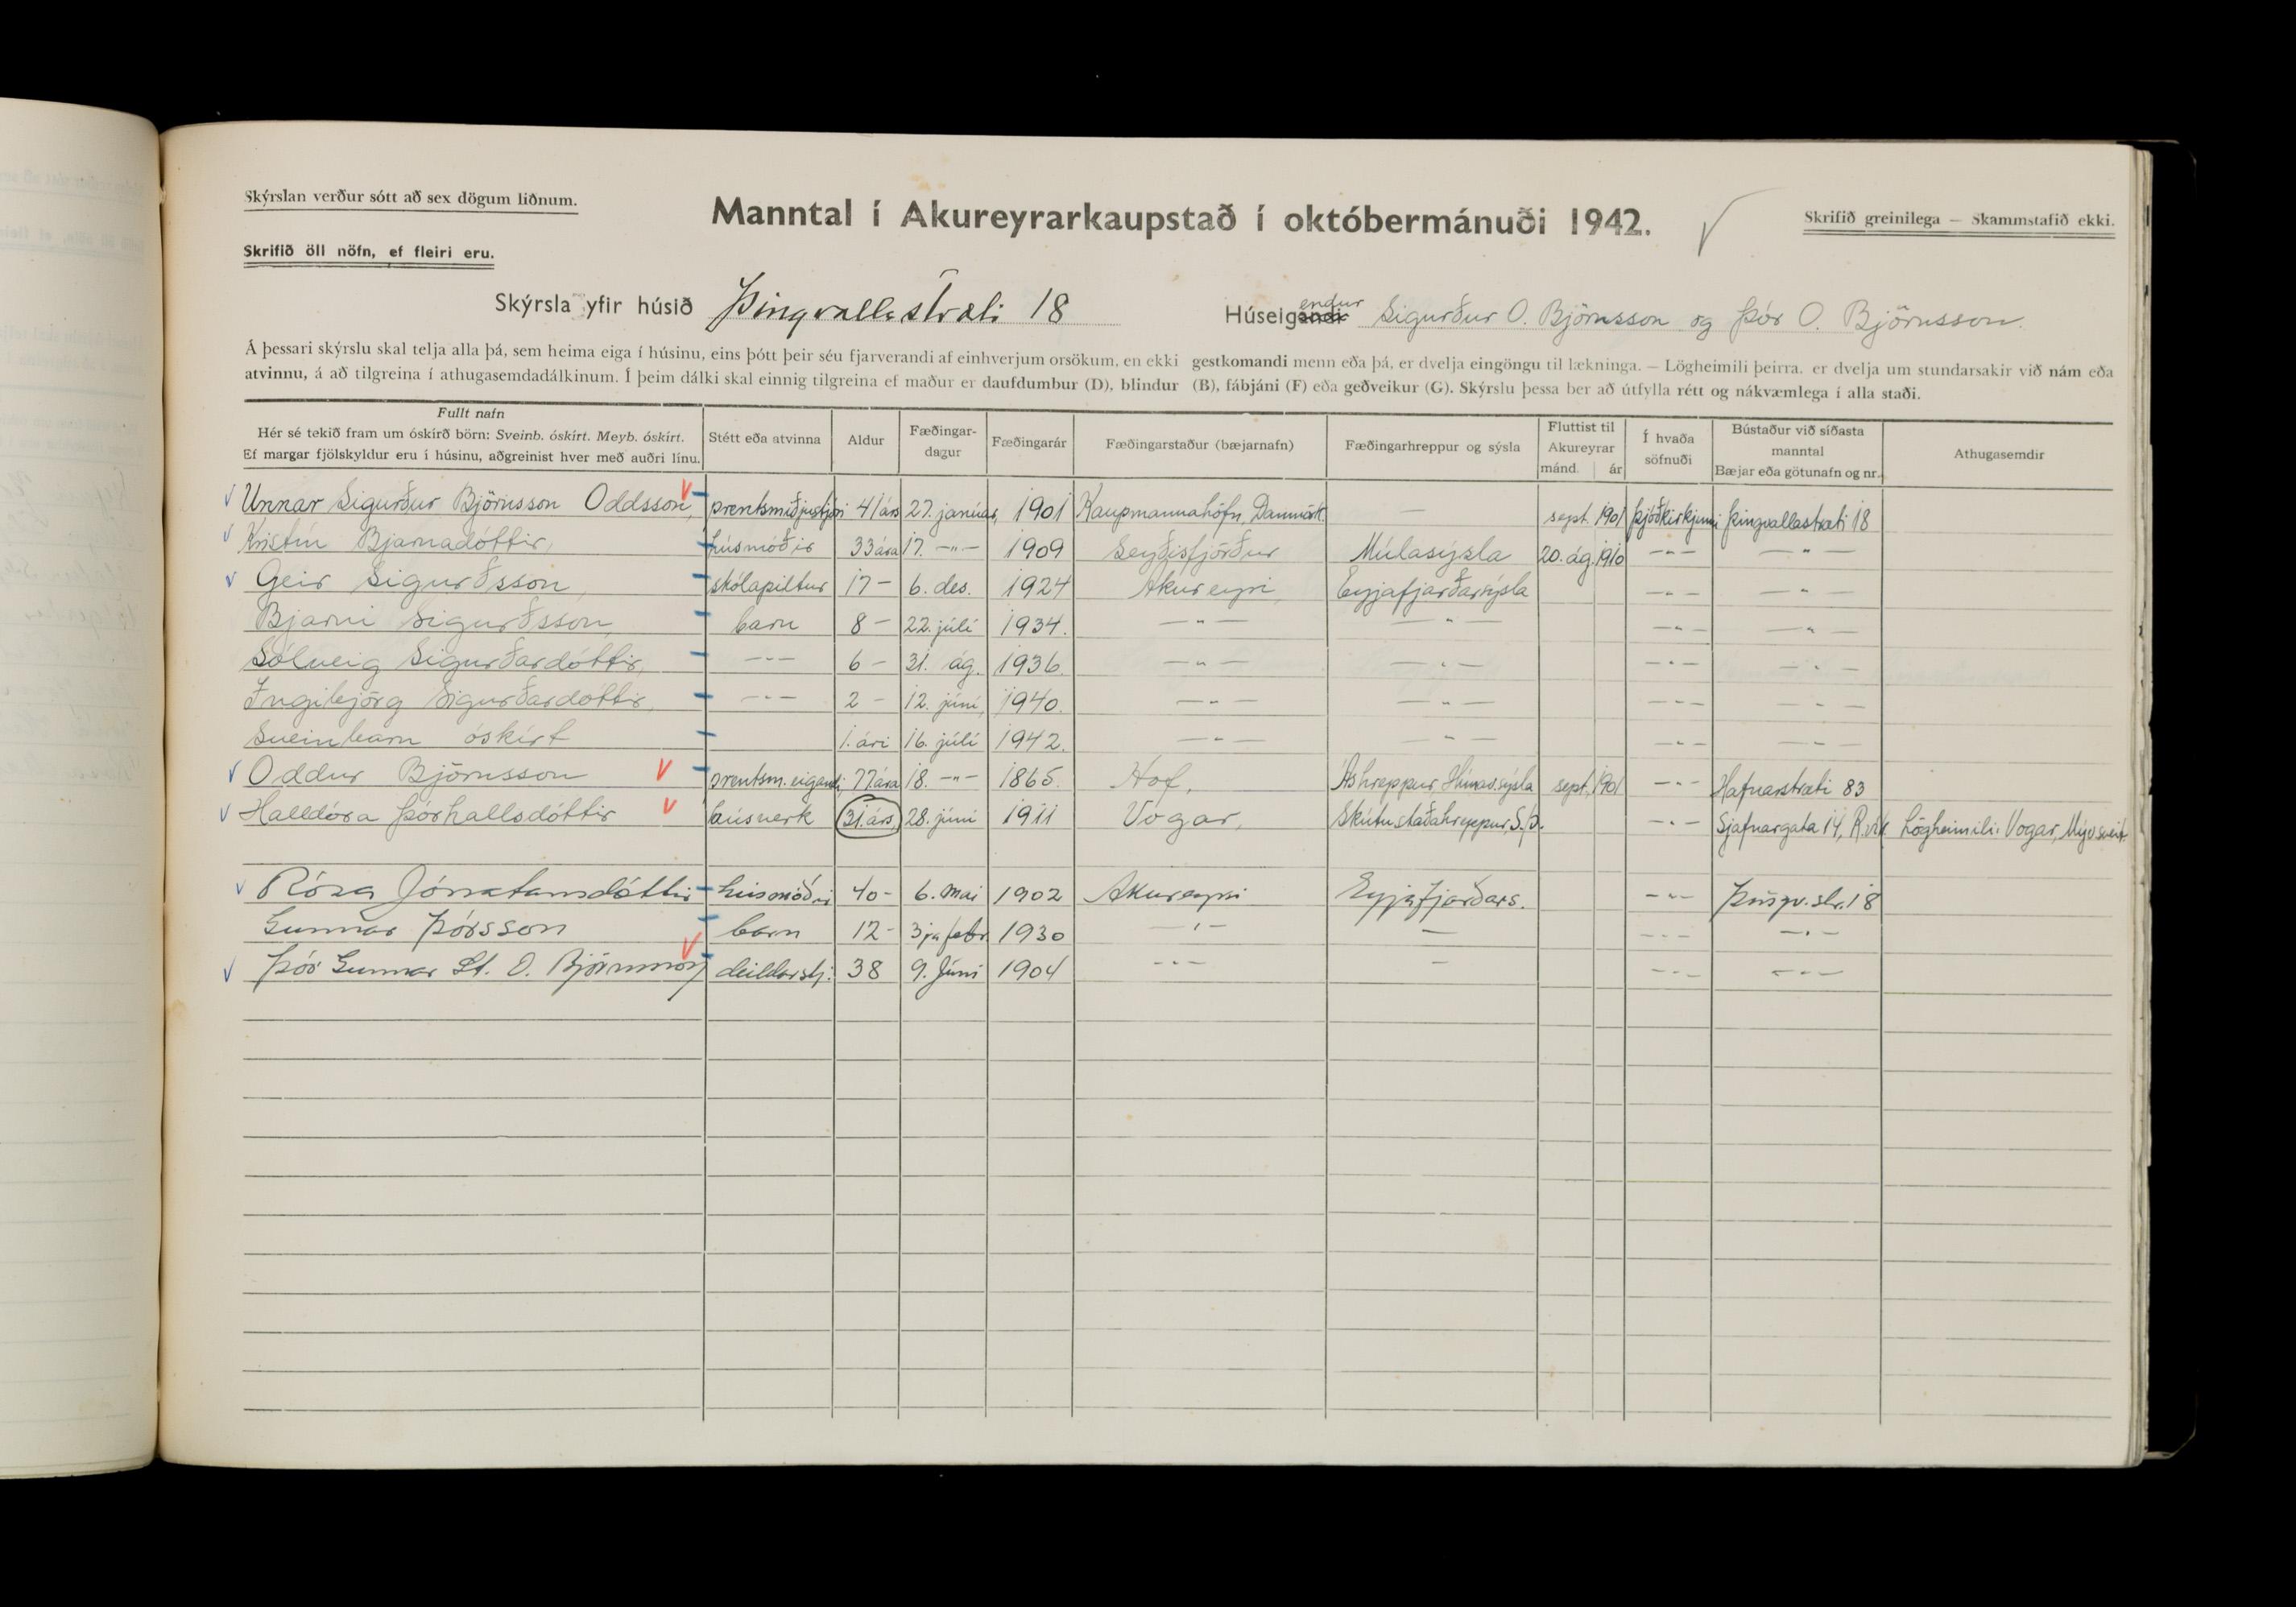 Skýrslan verður sótt að sex dögum liðnum.
Skrifið öll nöfn, ef fleiri eru.
Manntal í Akureyrarkaupstað í októbermánuði 1942.
Skrifið greinilega — Skammstafið ekki.
Skýrsla yfir húsið Þingvallastræti 18
Húseigandi endur Sigurður O. Björnsson og Þór O. Björnsson.
Á þessari skýrslu skal telja alla þá, sem heima eiga í húsinu, eins þótt þeir séu fjarverandi af einhverjum orsökum, en ekki gestkomandi menn eða þá, er dvelja eingöngu til lækninga. — Lögheimili þeirra, er dvelja um stundarsakir við nám eða
atvinnu, á að tilgreina í athugasemdadálkinum. Í þeim dálki skal einnig tilgreina ef maður er daufdumbur (D), blindur (B), fábjáni (F) eða geðveikur (G). Skýrslu þessa ber að útfylla rétt og nákvæmlega í alla staði.
Fullt nafn
Hér sé tekið fram um óskírð börn: Sveinb. óskírt. Meyb. óskírt.
Ef margar fjölskyldur eru í húsinu, aðgreinist hver með auðri línu.
Stétt eða atvinna
Aldur
Fæðingar-
dagur
Fæðingarár
Fæðingarstaður (bæjarnafn)
Fæðingarhreppur og sýsla
Fluttist til
Akureyrar
mánd. ár
Í hvaða
söfnuði
Bústaður við síðasta
manntal
Bæjar eða götunafn og nr.
Athugasemdir
Unnar Sigurður Björnsson Oddsson, prentsmiðjustjóri 41 árs 27. janúar, 1901 Kaupmannahöfn, Danmörk — sept. 1901 Þjóðkirkjunni Þingvallastræti 18
Kristín Bjarnadóttir, húsmóðir 33 ára 17. —"— 1909 Seyðisfjörður Múlasýsla 20. ág. 1910 —"— —"—
Geir Sigurðsson, skólapiltur 17 — 6. des. 1924 Akureyri Eyjafjarðarsýsla —"— —"—
Bjarni Sigurðsson, barn 8 — 22. júlí 1934. —"— —"— —"— —"—
Sólveig Sigurðardóttir, —"— 6 — 31. ág. 1936. —"— —"— —"— —"—
Ingibjörg Sigurðardóttir, —"— 2 — 12. júní, 1940. —"— —"— —"— —"—
Sveinbarn óskírt 1. ári 16. júlí 1942. —"— —"— —"— —"—
Oddur Björnsson prentsm. eigandi, 77 ára 18. —"— 1865. Hof, Áshreppur, Húnav.sýsla sept. 1901 —"— Hafnarstræti 83
Halldóra Þórhallsdóttir húsverk 31. árs, 28. júní 1911 Vogar, Skútustaðahreppur, S.Þ. —"— Sjafnargata 14, R.vík Lögheimili: Vogar, Mývsveit.
Rósa Jónatansdóttir húsmóðir 40 — 6. mai 1902 Akureyri Eyjafjarðars. —"— Þingv.str. 18
Gunnar Þórsson barn 12 — 3ja febr. 1930 —"— — —"— —"—
Þór Gunnar St. O. Björnsson deildarstj. 38 9. Júní 1904 —"— — —"— —"—